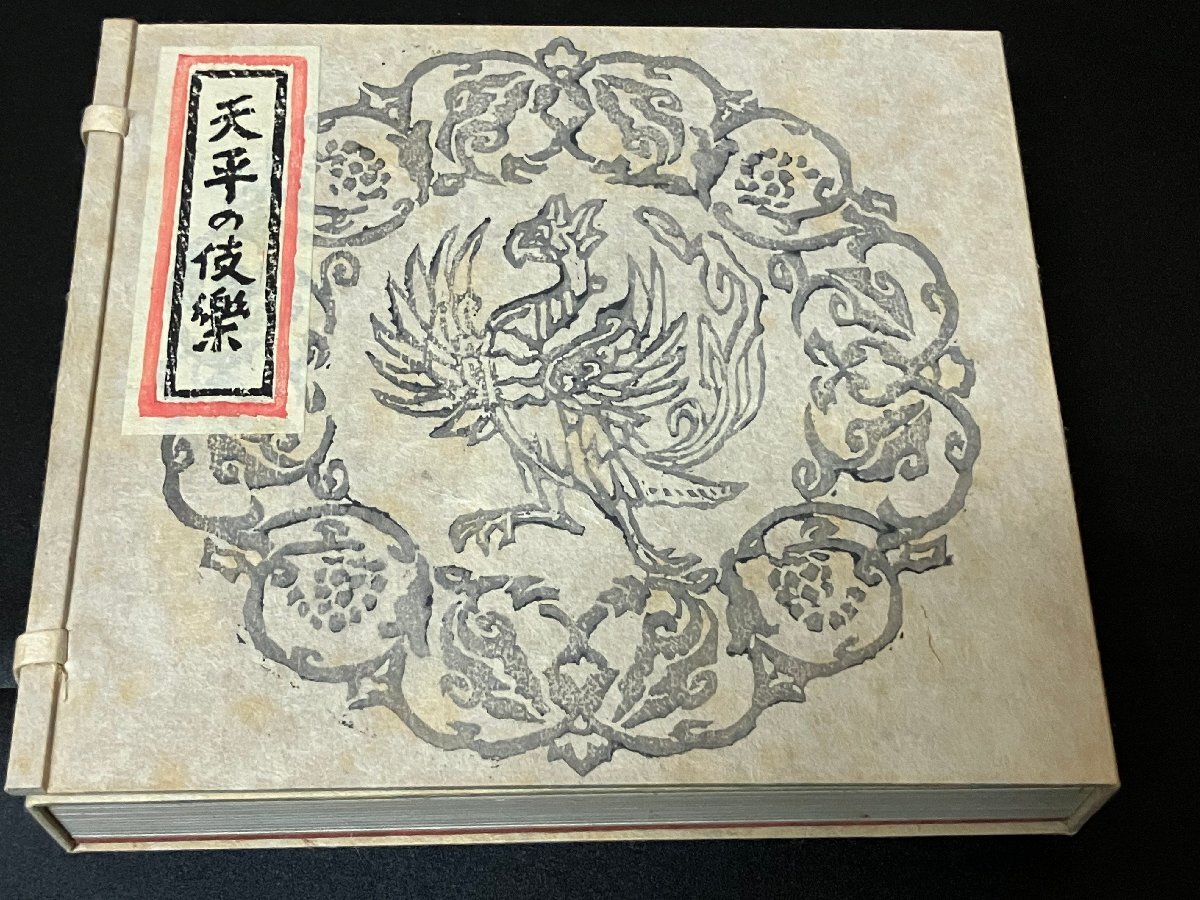 天平の伎樂